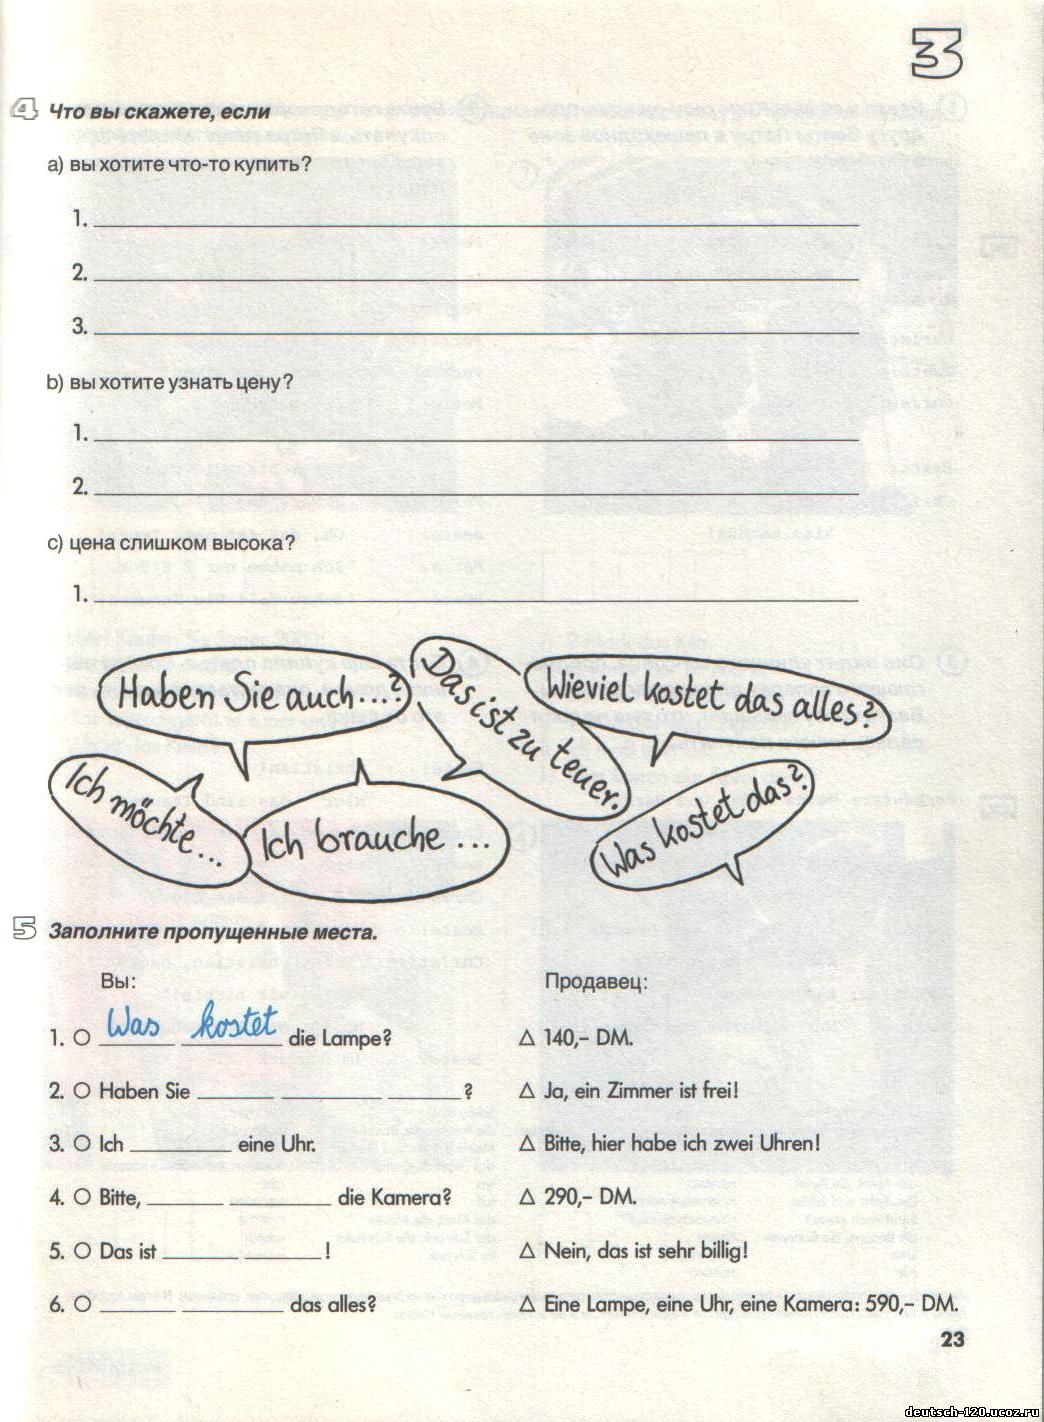 3
4 Что вы скажете, если
a) вы хотите что-то купить?
1.
2.
3.
b) вы хотите узнать цену?
1.
2.
c) цена слишком высока?
1.
Haben Sie auch...?
Das ist zu teuer.
Wieviel kostet das alles?
Ich möchte...
Ich brauche...
Was kostet das?
5 Заполните пропущенные места.
Вы: Продавец:
1. O Was kostet die Lampe? Δ 140,– DM.
2. O Haben Sie ______ ______ ______? Δ Ja, ein Zimmer ist frei!
3. O Ich ______ eine Uhr. Δ Bitte, hier habe ich zwei Uhren!
4. O Bitte, ______ ______ die Kamera? Δ 290,– DM.
5. O Das ist ______ ______! Δ Nein, das ist sehr billig!
6. O ______ ______ das alles? Δ Eine Lampe, eine Uhr, eine Kamera: 590,– DM.
23
deutsch-120.ucoz.ru